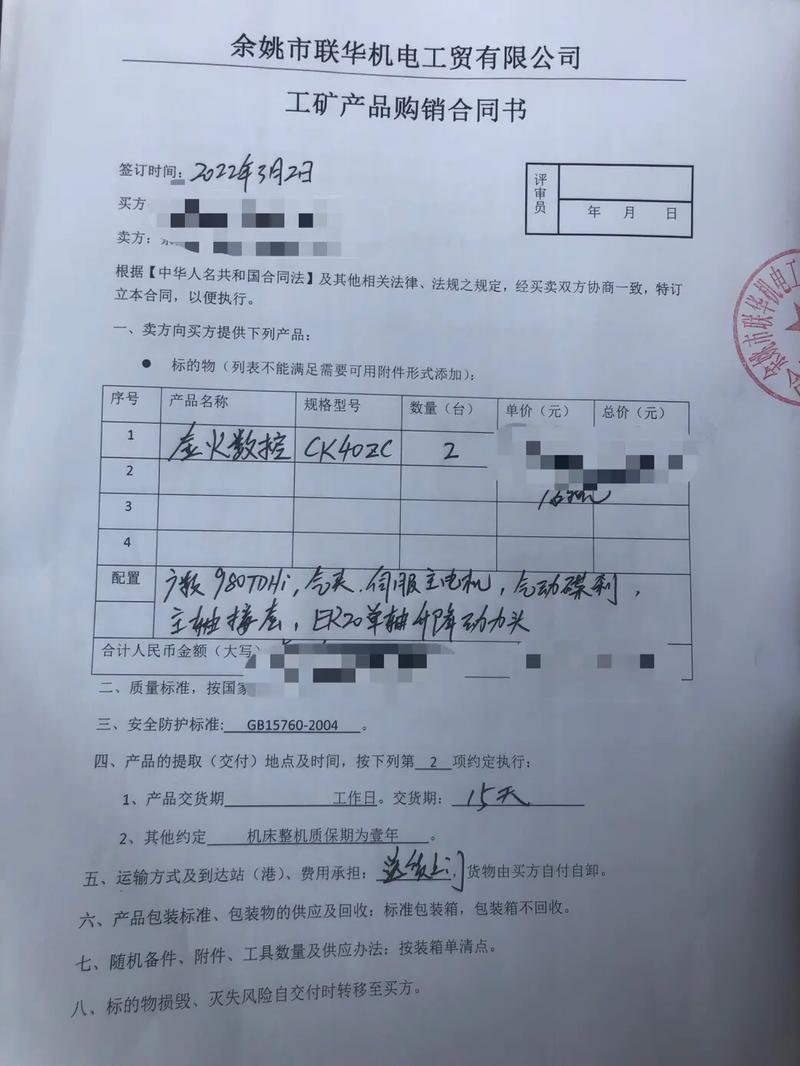 余姚市联华机电工贸有限公司
工矿产品购销合同书
签订时间：2022年3月2日
评审员
年 月 日
买方
卖方：
根据【中华人名共和国合同法】及其他相关法律、法规之规定，经买卖双方协商一致，特订
立本合同，以便执行。
一、卖方向买方提供下列产品：
● 标的物（列表不能满足需要可用附件形式添加）：
序号 产品名称 规格型号 数量（台） 单价（元） 总价（元）
1 数控 CK40ZC 2
2
3
4
配置 广数980TDHi，气夹.伺服主电机，气动碟刹，
主轴接套，ER20单轴升降动力头
合计人民币金额（大写）
二、质量标准，按国家
三、安全防护标准: GB15760-2004 。
四、产品的提取（交付）地点及时间，按下列第 2 项约定执行：
1、产品交货期 工作日。交货期： 15天
2、其他约定 机床整机质保期为壹年 。
五、运输方式及到达站（港）、费用承担：送货上门，货物由买方自付自卸。
六、产品包装标准、包装物的供应及回收：标准包装箱，包装箱不回收。
七、随机备件、附件、工具数量及供应办法：按装箱单清点。
八、标的物损毁、灭失风险自交付时转移至买方。
余姚市联华机电工